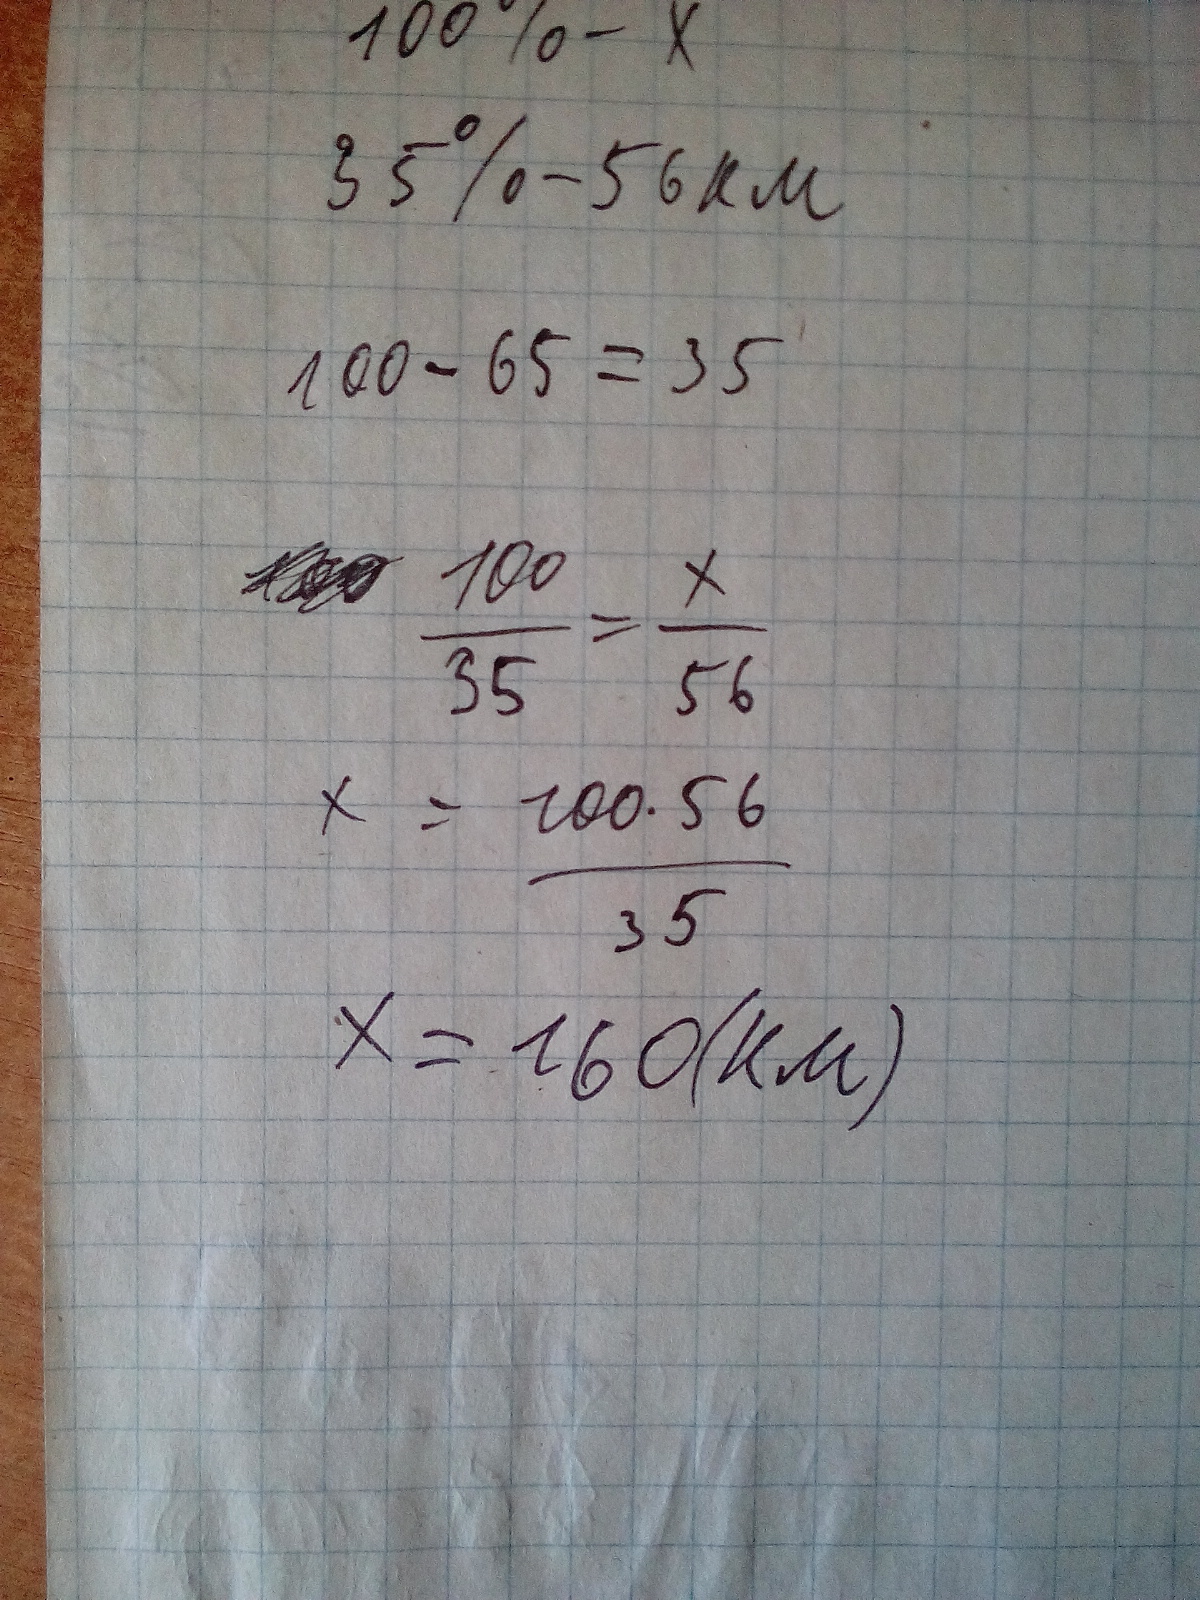 100% - x
35% - 56 км
100 - 65 = 35
100/35 = x/56
x = 100·56/35
x = 160 (км)